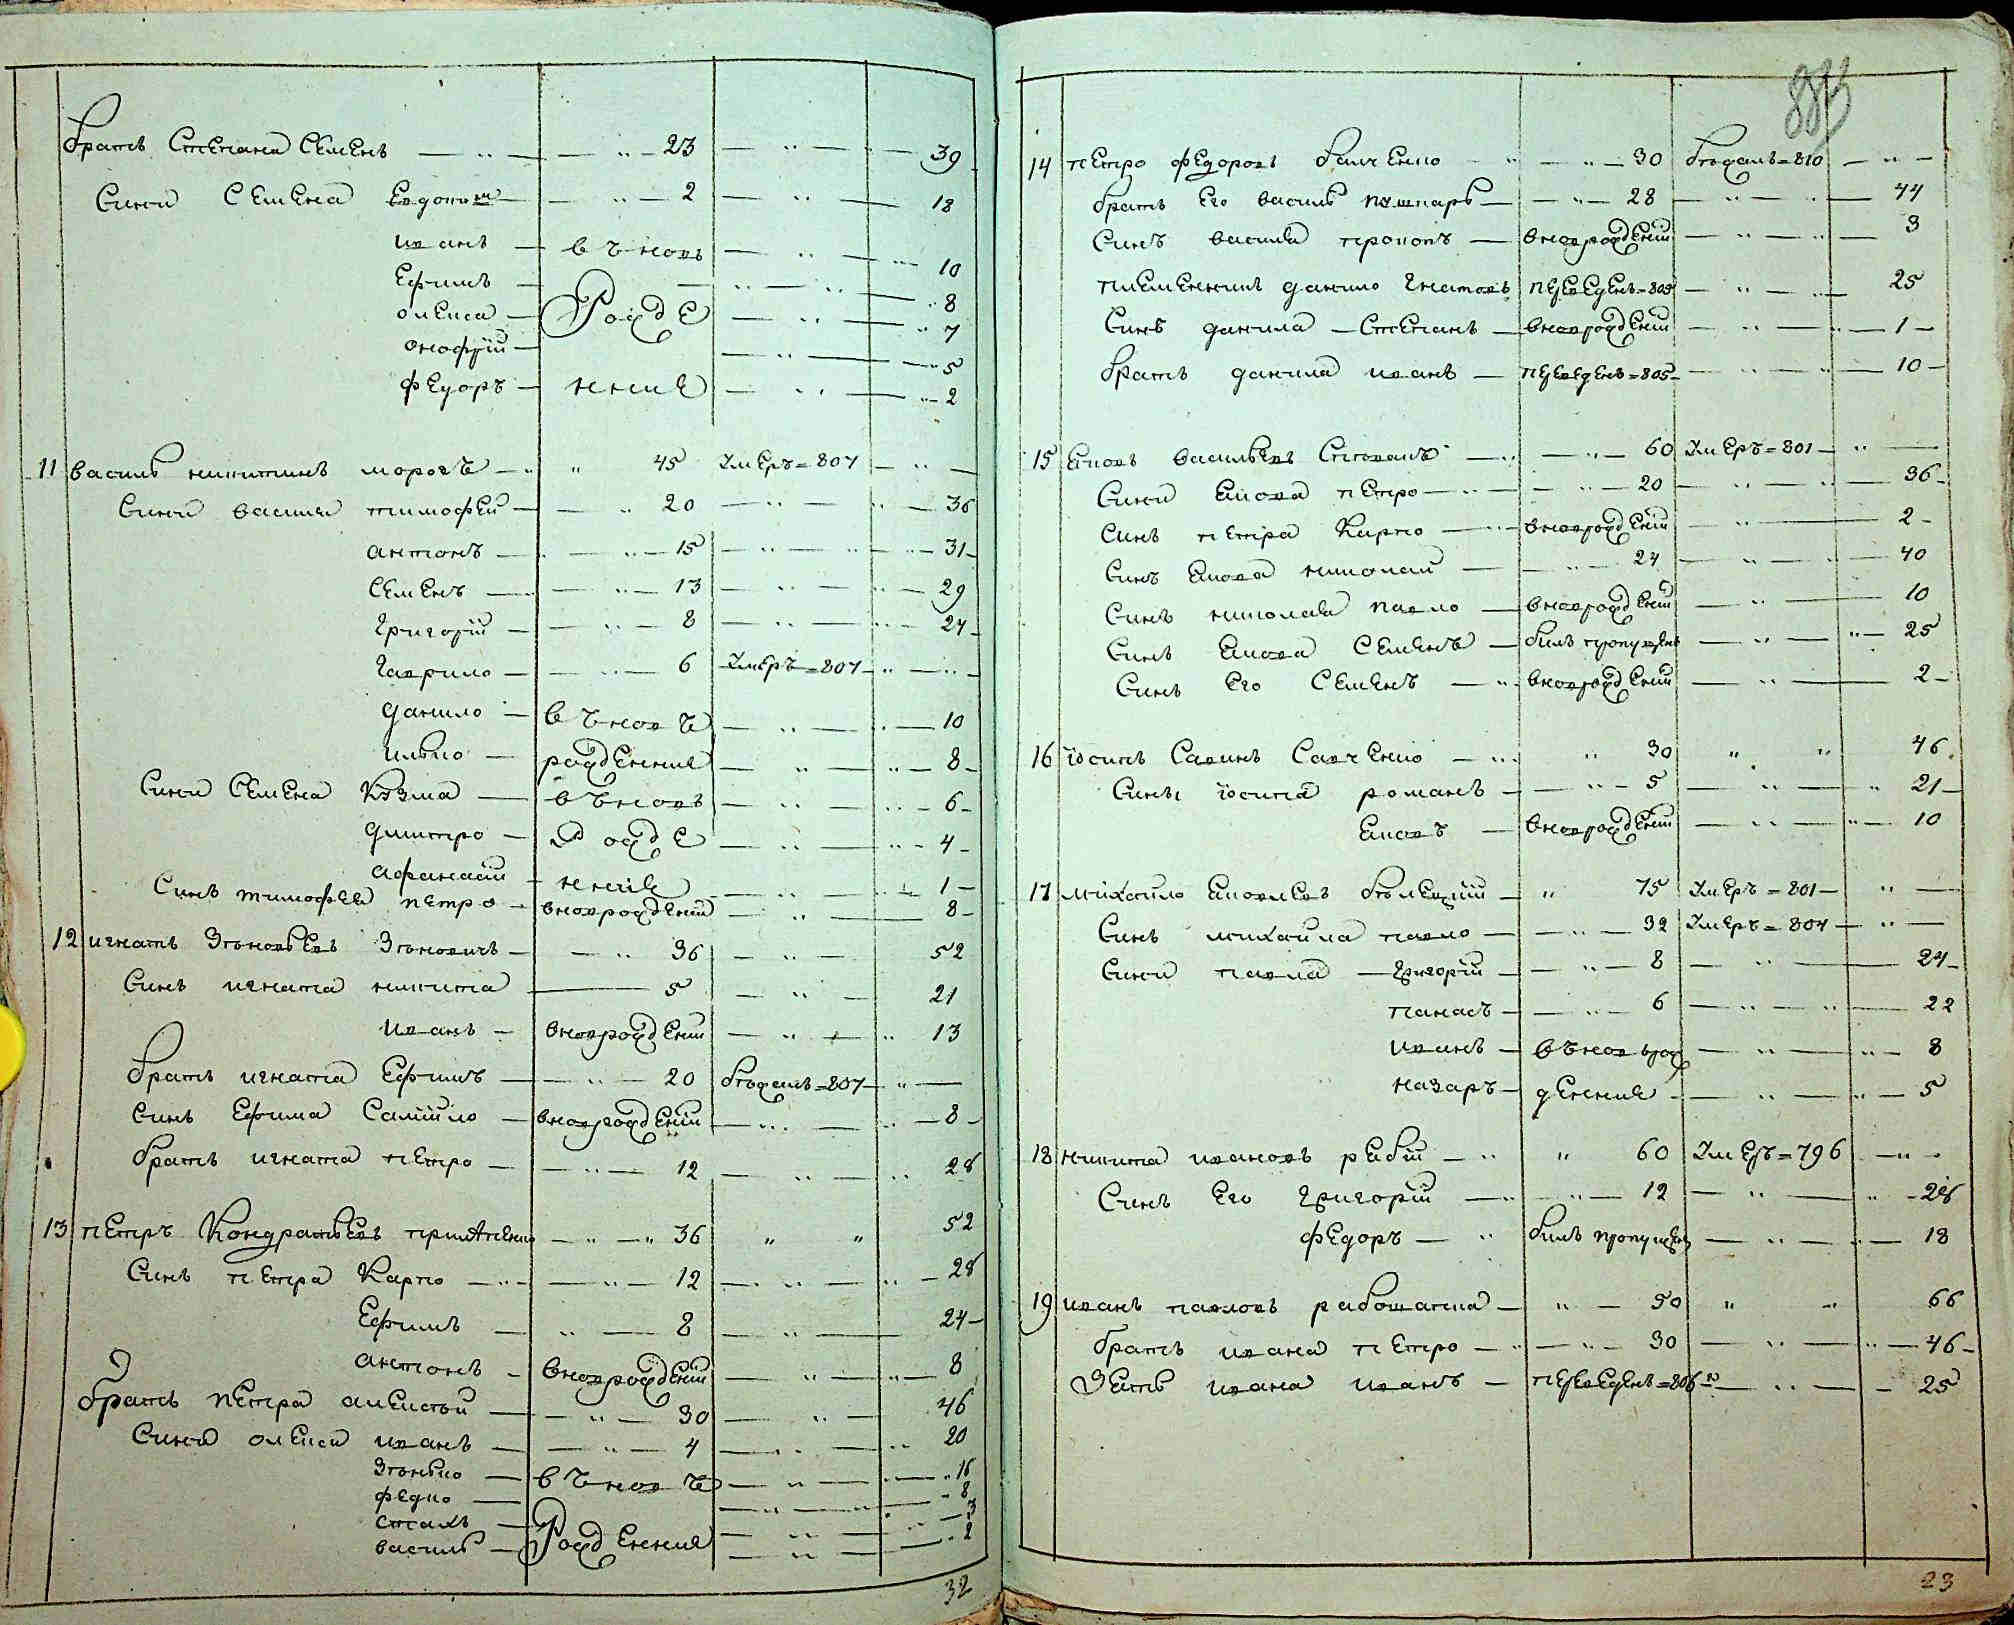 братъ Степана Семенъ — 23 — 39
Сини Семена Евдоким — 2 — 18
иванъ — въновь — 10
Ефимъ — 8
олекса — Рожде — 7
онофрій — 5
федоръ — нния — 2
11 василь никитинъ морозъ — 45 Умеръ=807 —
Сини василя тимофей — 20 — 36
антонъ — 15 — 31
Семенъ — 13 — 29
Григорій — 8 — 24
Гаврило — 6 Умеръ=807 —
данило — въновъ — 10
илько — рожденния — 8
Сини Семена Кузма — въновь — 6
дмитро — Рожде — 4
афанасій — ннія — 1
Синъ тимофея петро — вноврожденій — 8
12 игнатъ Зѣновьевъ Зѣновичъ — 36 — 52
Синъ игната никита — 5 — 21
иванъ — вноврожденій — 13
братъ игната Ефимъ — 20 бѣжалъ=807 —
Синъ Ефима Самійло — вноврожденій — 8
братъ игната петро — 12 — 28
13 петръ Кондратьевъ — 36 " " 52
Синъ петра Карпо — 12 — 28
Ефимъ — 8 — 24
антонъ — вноврожденій — 8
братъ петра алексѣй — 30 — 46
Сини олекси иванъ — 4 — 20
Зѣнько — въновъ — 16
федко — 8
стахъ — 3
василь — Рожденния — 2
32
14 петро федоровъ — 30 бѣжалъ=810 —
братъ Его василь пушкаръ — 28 — 44
Синъ василя прокопъ — вноврожденій — 3
племенникъ данило Игнатовъ переведенъ=805 — 25
Синъ данила — Степанъ — вноврожденій — 1
братъ данила иванъ — переведенъ=805 — 10
15 Яковъ васильевъ — 60 Умеръ=801 —
Сини Якова петро — 20 — 36
Синъ петра Карпо — вноврожденій — 2
Синъ Якова николай — 24 — 40
Синъ николая павло — вноврожденій — 10
Синъ Якова Семенъ — билъ пропущенъ — 25
Синъ Его Семенъ — вноврожденій — 2
16 іосипъ Савинъ Савченко — 30 " " 46
Сины іосипа романъ — 5 — 21
Яковъ — вноврожденій — 10
17 михайло Яковлевъ — 75 Умеръ=801 —
Синъ михайла павло — 32 Умеръ=804 —
Сини павла — Григорій — 8 — 24
панасъ — 6 — 22
иванъ — въновь рож — 8
назаръ — дення — 5
18 никита ивановъ рябій — 60 Умеръ=796 —
Синъ Его Григорій — 12 — 28
федоръ — билъ пропущенъ — 18
19 иванъ павловъ рабошапка — 50 " " 66
братъ ивана петро — 30 — 46
Зять ивана иванъ — переведенъ=806 — 25
23